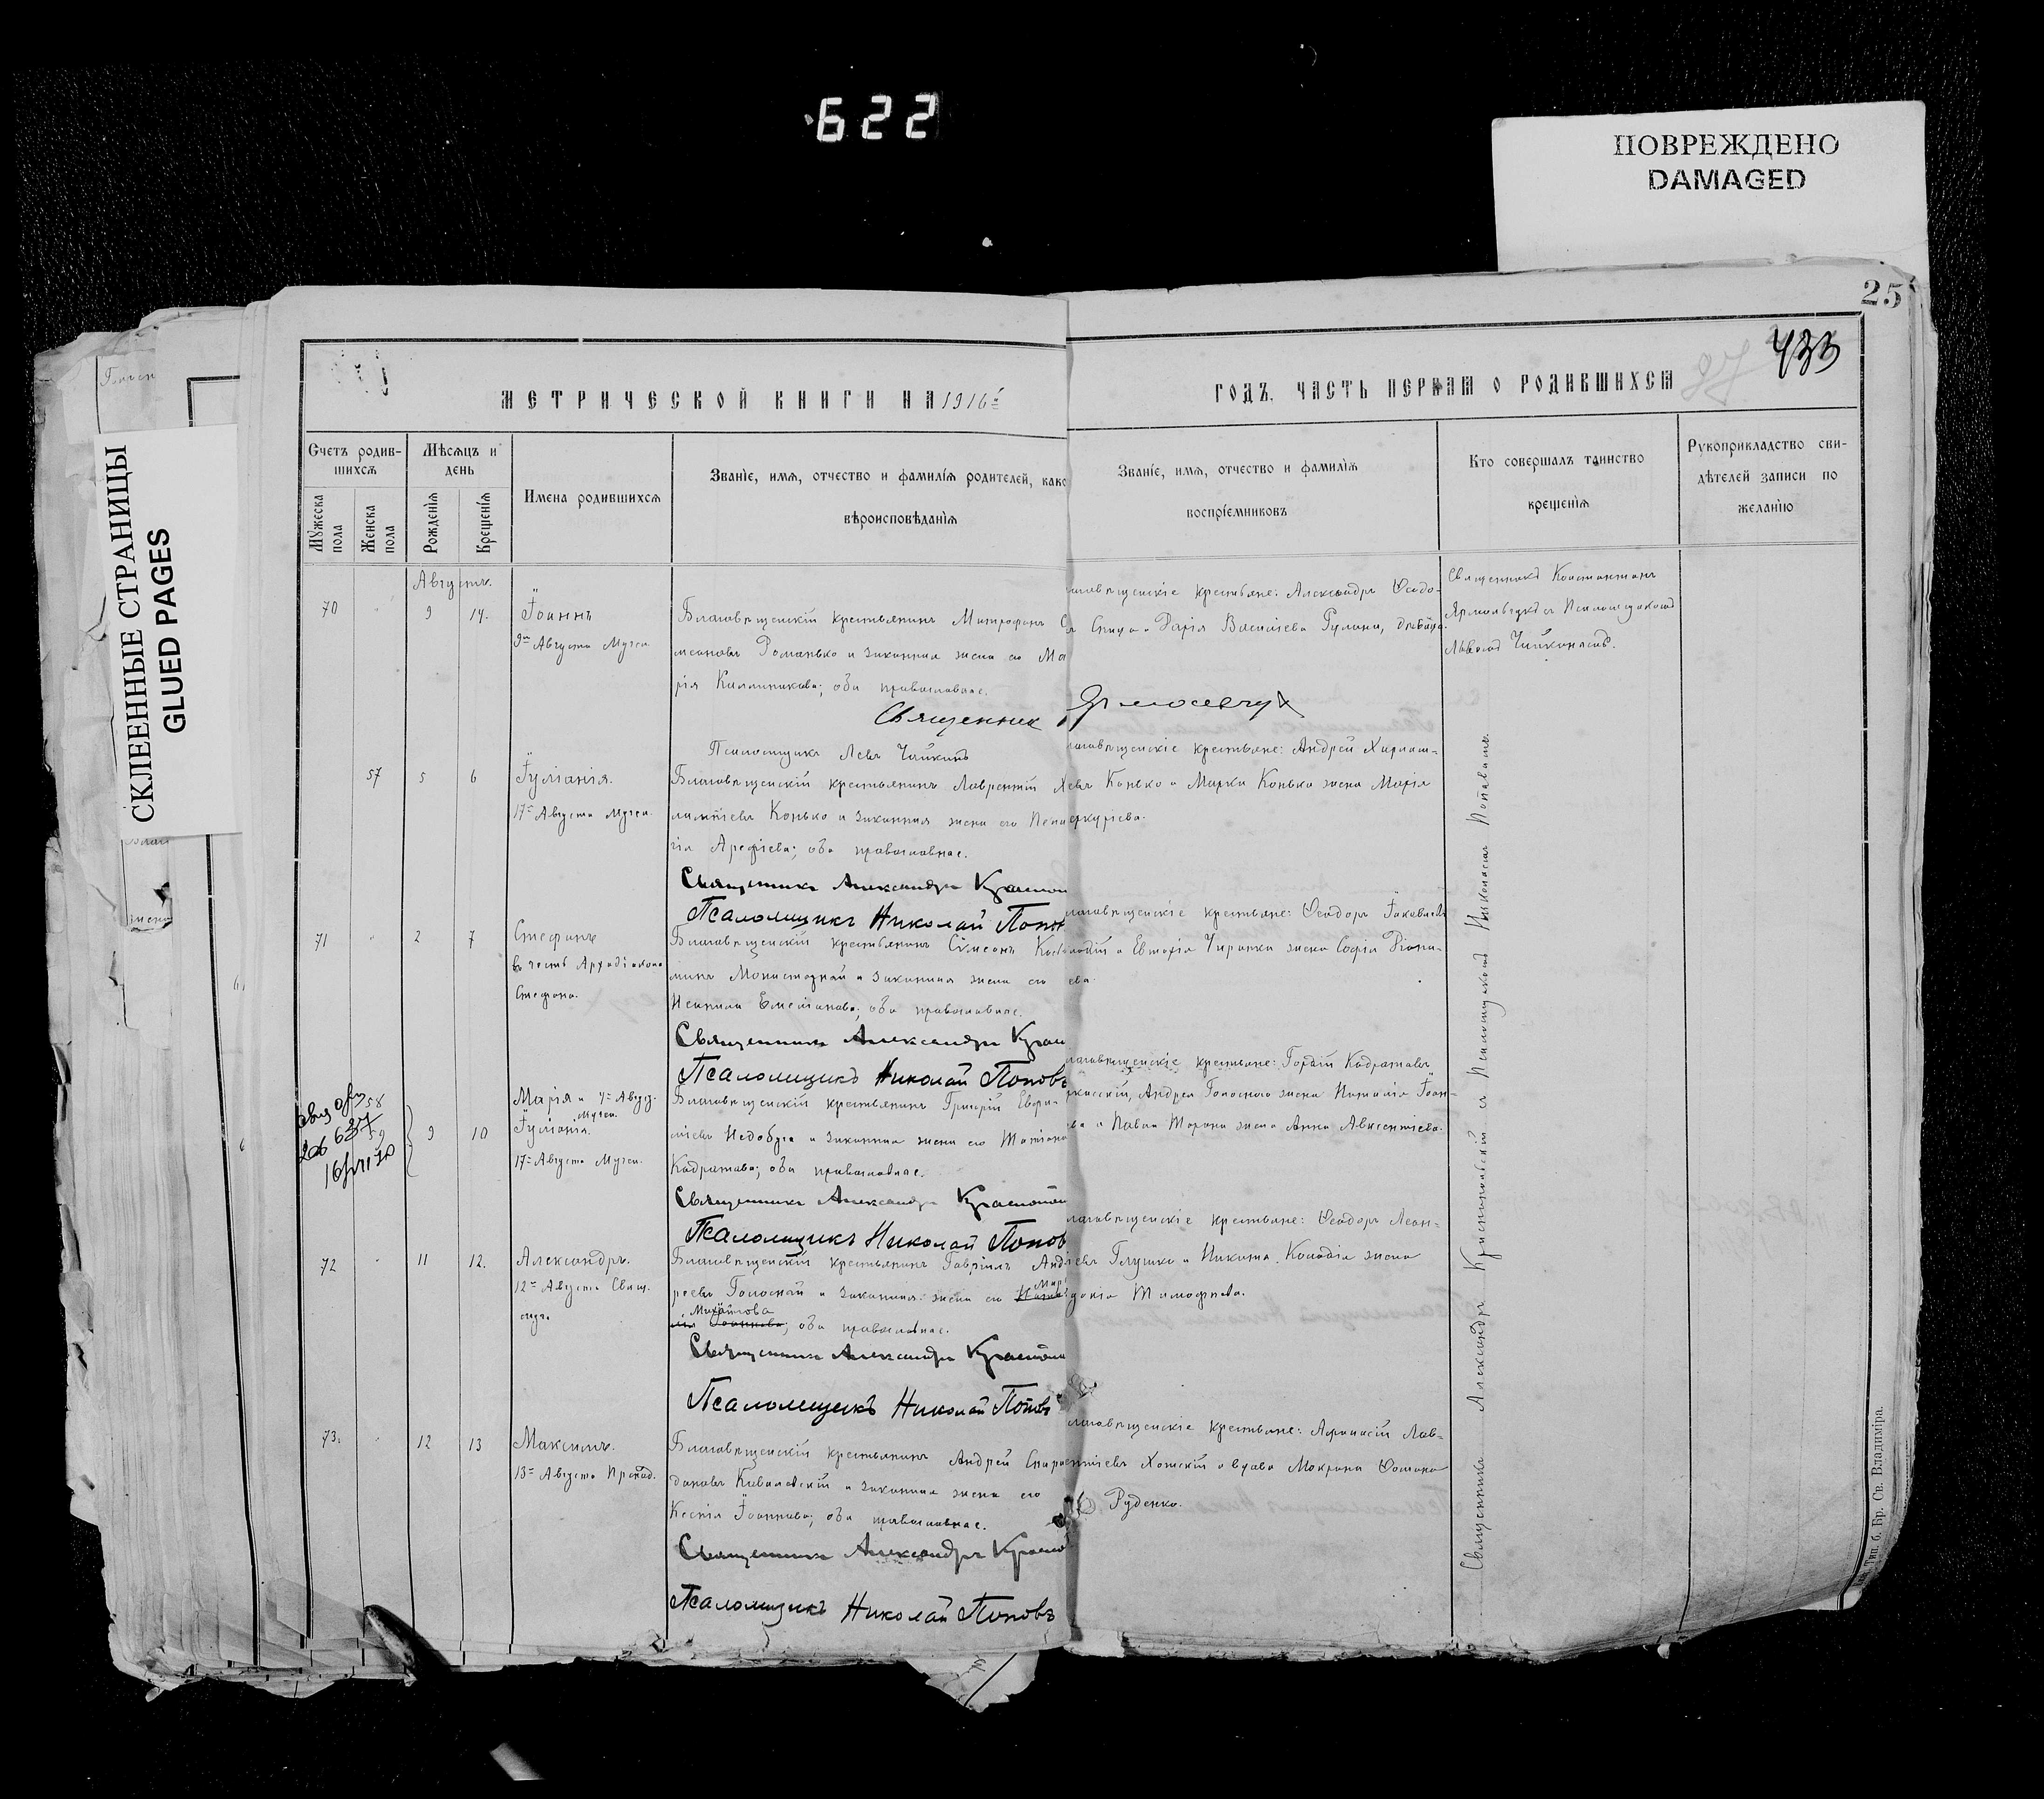 622
ПОВРЕЖДЕНО
DAMAGED
СКЛЕЕННЫЕ СТРАНИЦЫ
GLUED PAGES
25
433
27
МЕТРИЧЕСКОЙ КНИГИ НА 1916й
ГОДЪ, ЧАСТЬ ПЕРВАЯ О РОДИВШИХСЯ
Счетъ родив-
шихся
Мѣсяцъ и
день
Мужеска
пола
Женска
пола
Рожденія
Крещенія
Имена родившихся
Званіе, имя, отчество и фамилія родителей, како
вѣроисповѣданія
Званіе, имя, отчество и фамилія
воспріемниковъ
Кто совершалъ таинство
крещенія
Рукоприкладство сви-
дѣтелей записи по
желанію
Августъ.
70 " 9 14.
Іоаннъ
9го Августа Мучен.
Благовѣщенскій крестьянинъ Митрофанъ
Романько и законная жена его Ма
рія Каллиникова; оба православные.
Священник
Псаломщикъ Левъ Чайкинъ
лаговѣщенскіе крестьяне: Александръ Ѳеодо-
Спица и Дарія Васильева Гулина, дѣвица.
Ярмольчук
Священникъ Константинъ
Ярмольчукъ съ Псаломщикомъ
Львомъ Чайкинымъ.
57 5 6
Іуліанія.
17го Августа Мучен.
Благовѣщенскій крестьянинъ Лаврентій Х
Конько и законная жена его Пела
гія Арефіева; оба православные.
Священникъ Александръ
Псаломщикъ Николай Попов
лаговѣщенскіе крестьяне: Андрей Харлам-
евъ Конько и Марка Конько жена Марія
еркуріева.
71 " 2 7
Стефанъ
въ честь Архидіакона
Стефана.
Благовѣщенскій крестьянинъ Сѵмеонъ
Монастырный и законная жена его
Емеліанова; оба православные.
Священникъ Александръ
Псаломщикъ Николай Поповъ
лаговѣщенскіе крестьяне: Ѳеодоръ Іаковлевъ
и Евтихія Чирка жена Софія
ева.
58
59
9 10
Марія и
Мучен.
Іуліанія.
17го Августа Мучен.
Благовѣщенскій крестьянинъ Григорій
Недобуга и законная жена его Татіана
Кодратова; оба православные.
Священникъ Александръ
Псаломщикъ Николай Попов
лаговѣщенскіе крестьяне: Гордій Кодратовъ
Андрея Голоснаго жена Наталія Іоан-
ва и Павла Торана жена Анна Авксентіева.
72 " 11 12.
Александръ.
12го Августа Свящ.
муч.
Благовѣщенскій крестьянинъ Гавріилъ Анд
реевъ Голосный и законная жена его
Михайлова
Іоаннова; оба православные.
Священникъ Александръ
Псаломщикъ Николай Поповъ
лаговѣщенскіе крестьяне: Ѳеодоръ Леон-
евъ Глушко и Никита Колодія жена
докія Тимофеева.
73. " 12 13
Максимъ.
13го Августа Препод.
Благовѣщенскій крестьянинъ Андрей Спири
доновъ Ковалевскій и законная жена его
Ксенія Іоаннова; оба православные.
Священникъ Александръ
Псаломщикъ Николай Поповъ
лаговѣщенскіе крестьяне: Афанасій Лав-
рентіевъ Хомскій и вдова Макрина
Руденко.
Священникъ Александръ съ Псаломщикомъ Николаемъ Поповымъ.
Тип. б. Бр. Св. Владиміра.